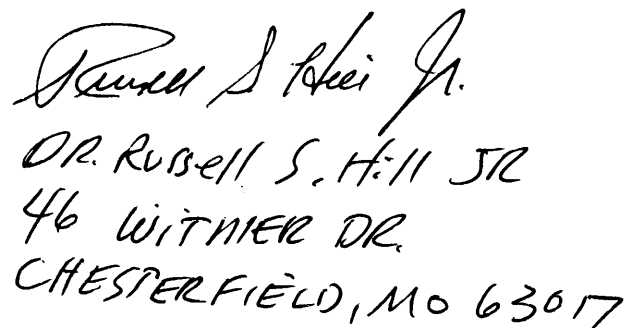 Russell S Hill Jr.
DR. Russell S. Hill JR
46 WITHIER DR.
CHESTERFIELD, MO 63017